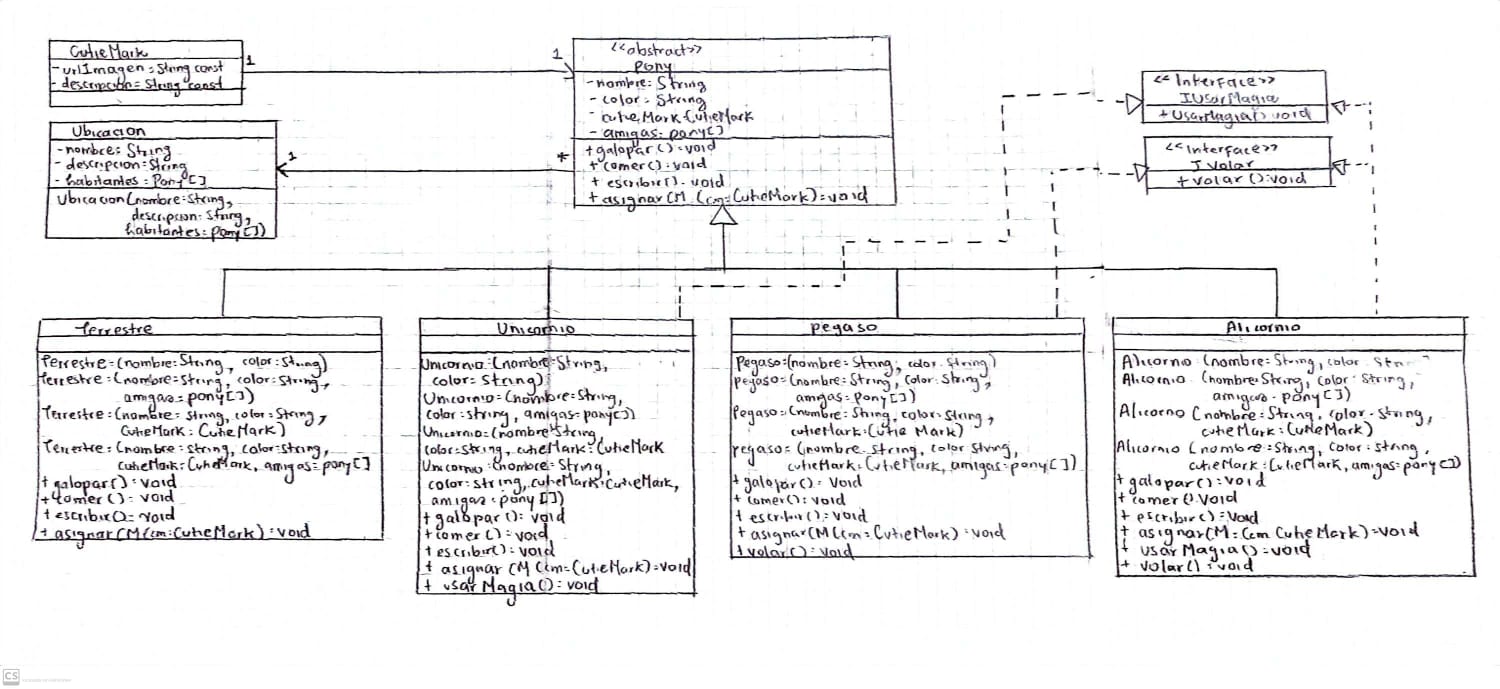 CutieMark
- urlImagen: String const
- descripcion: String const
1
1
Ubicacion
- nombre: String
- descripcion: String
- habitantes: Pony[]
Ubicacion(nombre: String,
descripcion: String,
habitantes: pony[])
1
*
<<abstract>>
Pony
- nombre: String
- color: String
- cutieMark: CutieMark
- amigas: pony[]
+ galopar(): void
+ comer(): void
+ escribir(): void
+ asignarCM (cm: CutieMark): void
<<Interface>>
IUsarMagia
+ UsarMagia(): void
<<Interface>>
I Volar
+ volar(): void
Terrestre
Terrestre: (nombre: String, color: String)
Terrestre: (nombre: String, color: String,
amigas: pony[])
Terrestre: (nombre: String, color: String,
CutieMark: CutieMark)
Terrestre: (nombre: string, color: string,
cutieMark: CutieMark, amigas: pony[]
+ galopar(): void
+ comer(): void
+ escribir(): void
+ asignarCM(cm: CutieMark): void
Unicornio
Unicornio: (nombre: String,
color: String)
Unicornio: (nombre: String,
color: string, amigas: pony[])
Unicornio: (nombre: String
color: string, cutieMark: CutieMark
Unicornio: (nombre: String,
color: string, cutieMark: CutieMark,
amigas: pony[])
+ galopar(): void
+ comer(): void
+ escribir(): void
+ asignar CM (cm: CutieMark): void
+ usar Magia(): void
pegaso
Pegaso: (nombre: String, color: String)
pegaso: (nombre: String, color: String,
amigas: pony[])
Pegaso: (nombre: String, color: String,
cutieMark: Cutie Mark)
pegaso: (nombre: string, color: String,
cutieMark: CutieMark, amigas: pony[])
+ galopar(): Void
+ comer(): void
+ escribir(): void
+ asignarCM (cm: CutieMark): void
+ volar(): void
Alicornio
Alicornio (nombre: String, color: String
Alicornio (nombre: String, color: String,
amigas: pony[])
Alicorno (nombre: String, color: String,
cutieMark: CutieMark)
Alicornio (nombre: String, color: String,
cutieMark: CutieMark, amigas: pony[])
+ galopar(): Void
+ comer(): Void
+ escribir(): Void
+ asignarCM: (cm CutieMark): void
+ usar Magia(): void
+ volar(): void
CS